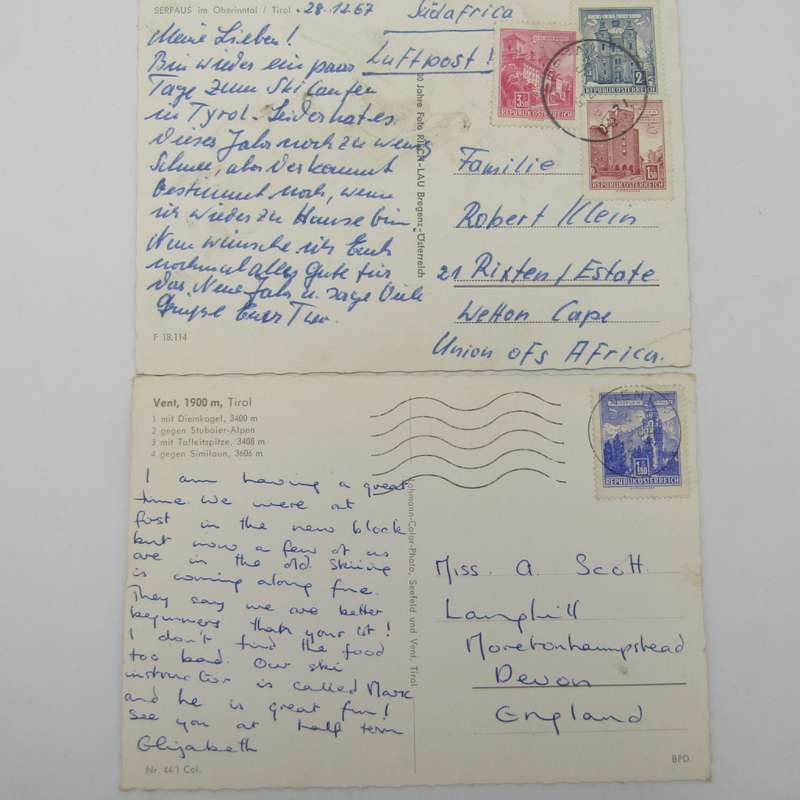 SERFAUS im Oberinntal / Tirol
28.12.67
Südafrica
Meine Lieben!
Bin wieder ein paar
Luftpost!
Tage zum Ski laufen
in Tyrol. Leider hat es
dieses Jahr noch zu wenig
Schnee, aber der kommt
bestimmt noch, wenn
ich wieder zu Hause bin.
Nun wünsche ich Euch
nochmal alles Gute für
das Neue Jahr u. sage Viele
Grüße Euer
F 18.114
Jahre Foto RISCH-LAU Bregenz-Österreich
3.50
REPUBLIK ÖSTERREICH
2
REPUBLIK ÖSTERREICH
1.80
REPUBLIK ÖSTERREICH
Familie
Robert Klein
21 Rixten/Estate
Wetton Cape
Union of S Africa.
Vent, 1900 m, Tirol
1 mit Diemkogel, 3400 m
2 gegen Stubaier-Alpen
3 mit Talleitspitze, 3408 m
4 gegen Similaun, 3606 m
I am having a great
time. We were at
first in the new block
but now a few of us
are in the old. Skiing
is coming along fine.
They say we are better
beginners than your lot!
I don't find the food
too bad. Our ski
instructor is called Marx
and he is great fun!
See you at half term
Elizabeth
Nr. 44/1 Col.
Lohmann-Color-Photo, Seefeld und Vent, Tirol
REPUBLIK ÖSTERREICH
Miss. A. Scott.
Langhill
Moretonhampstead
Devon
England.
BPD